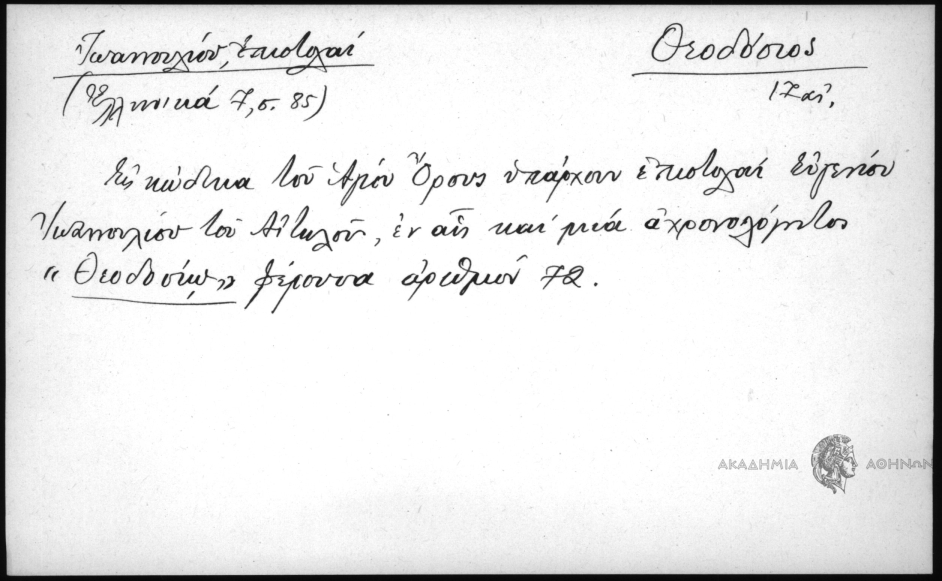 Ἰωαννουλίου, Ἐπιστολαί
Θεοδόσιος
(Ἑλληνικά 7, σ. 85)
17 αἰ.
Εἰς κώδικα τοῦ Ἁγίου Ὄρους ὑπάρχουν ἐπιστολαί Εὐγενίου
Ἰωαννουλίου τοῦ Αἰτωλοῦ, ἐν αἷς καί μιά ἀχρονολόγητος
« Θεοδοσίῳ » φέρουσα ἀριθμόν 72.
ΑΚΑΔΗΜΙΑ ΑΘΗΝΩΝ